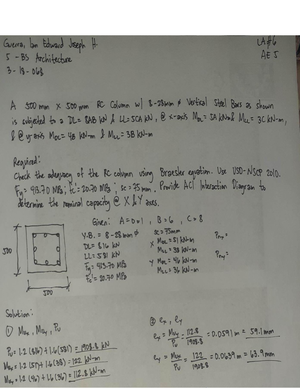 Guerra, Ian Edward Joseph H.
LA#6
5 - BS Architecture
AE 5
3-18-068
A 500 mm x 500 mm RC Column w/ 8-28mm ø Vertical Steel Bars as shown
is subjected to a DL= 8AB kN & LL= 5CA kN, @ x-axis MDL= 5A kN·m & MLL= 3C kN-m,
& @ y-axis MDL= 4B kN-m & MLL= 3B kN-m
Required:
Check the adequacy of the RC column using Bresler equation. Use USD-NSCP 2010.
Fy= 413.70 MPa; fc'= 20.70 MPa; sc= 75mm. Provide ACI Interaction Diagram to
determine the nominal capacity @ X & Y axes.
Given: A=0=1, B=6, C=8
V.B. = 8-28mm ø
DL= 816 kN
LL= 581 kN
Fy= 413.70 MPa
Fc'= 20.70 MPa
sc= 75mm
X MDL= 51 kN-m
MLL= 38 kN-m
Y MDL= 46 kN-m
MLL= 36 kN-m
Pnx=
Pny=
500
500
Solution:
① Mux, Muy, Pu
② ex, ey
Pu= 1.2 (816) + 1.6 (581) = 1908.8 kN
Mux= 1.2 (51) + 1.6 (38) = 122 kN-m
Muy= 1.2 (46) + 1.6 (36) = 112.8 kN-m
ex= Muy/Pu = 112.8/1908.8 = 0.0591 m = 59.1mm
ey= Mux/Pu = 122/1908.8 = 0.0639 m = 63.9 mm